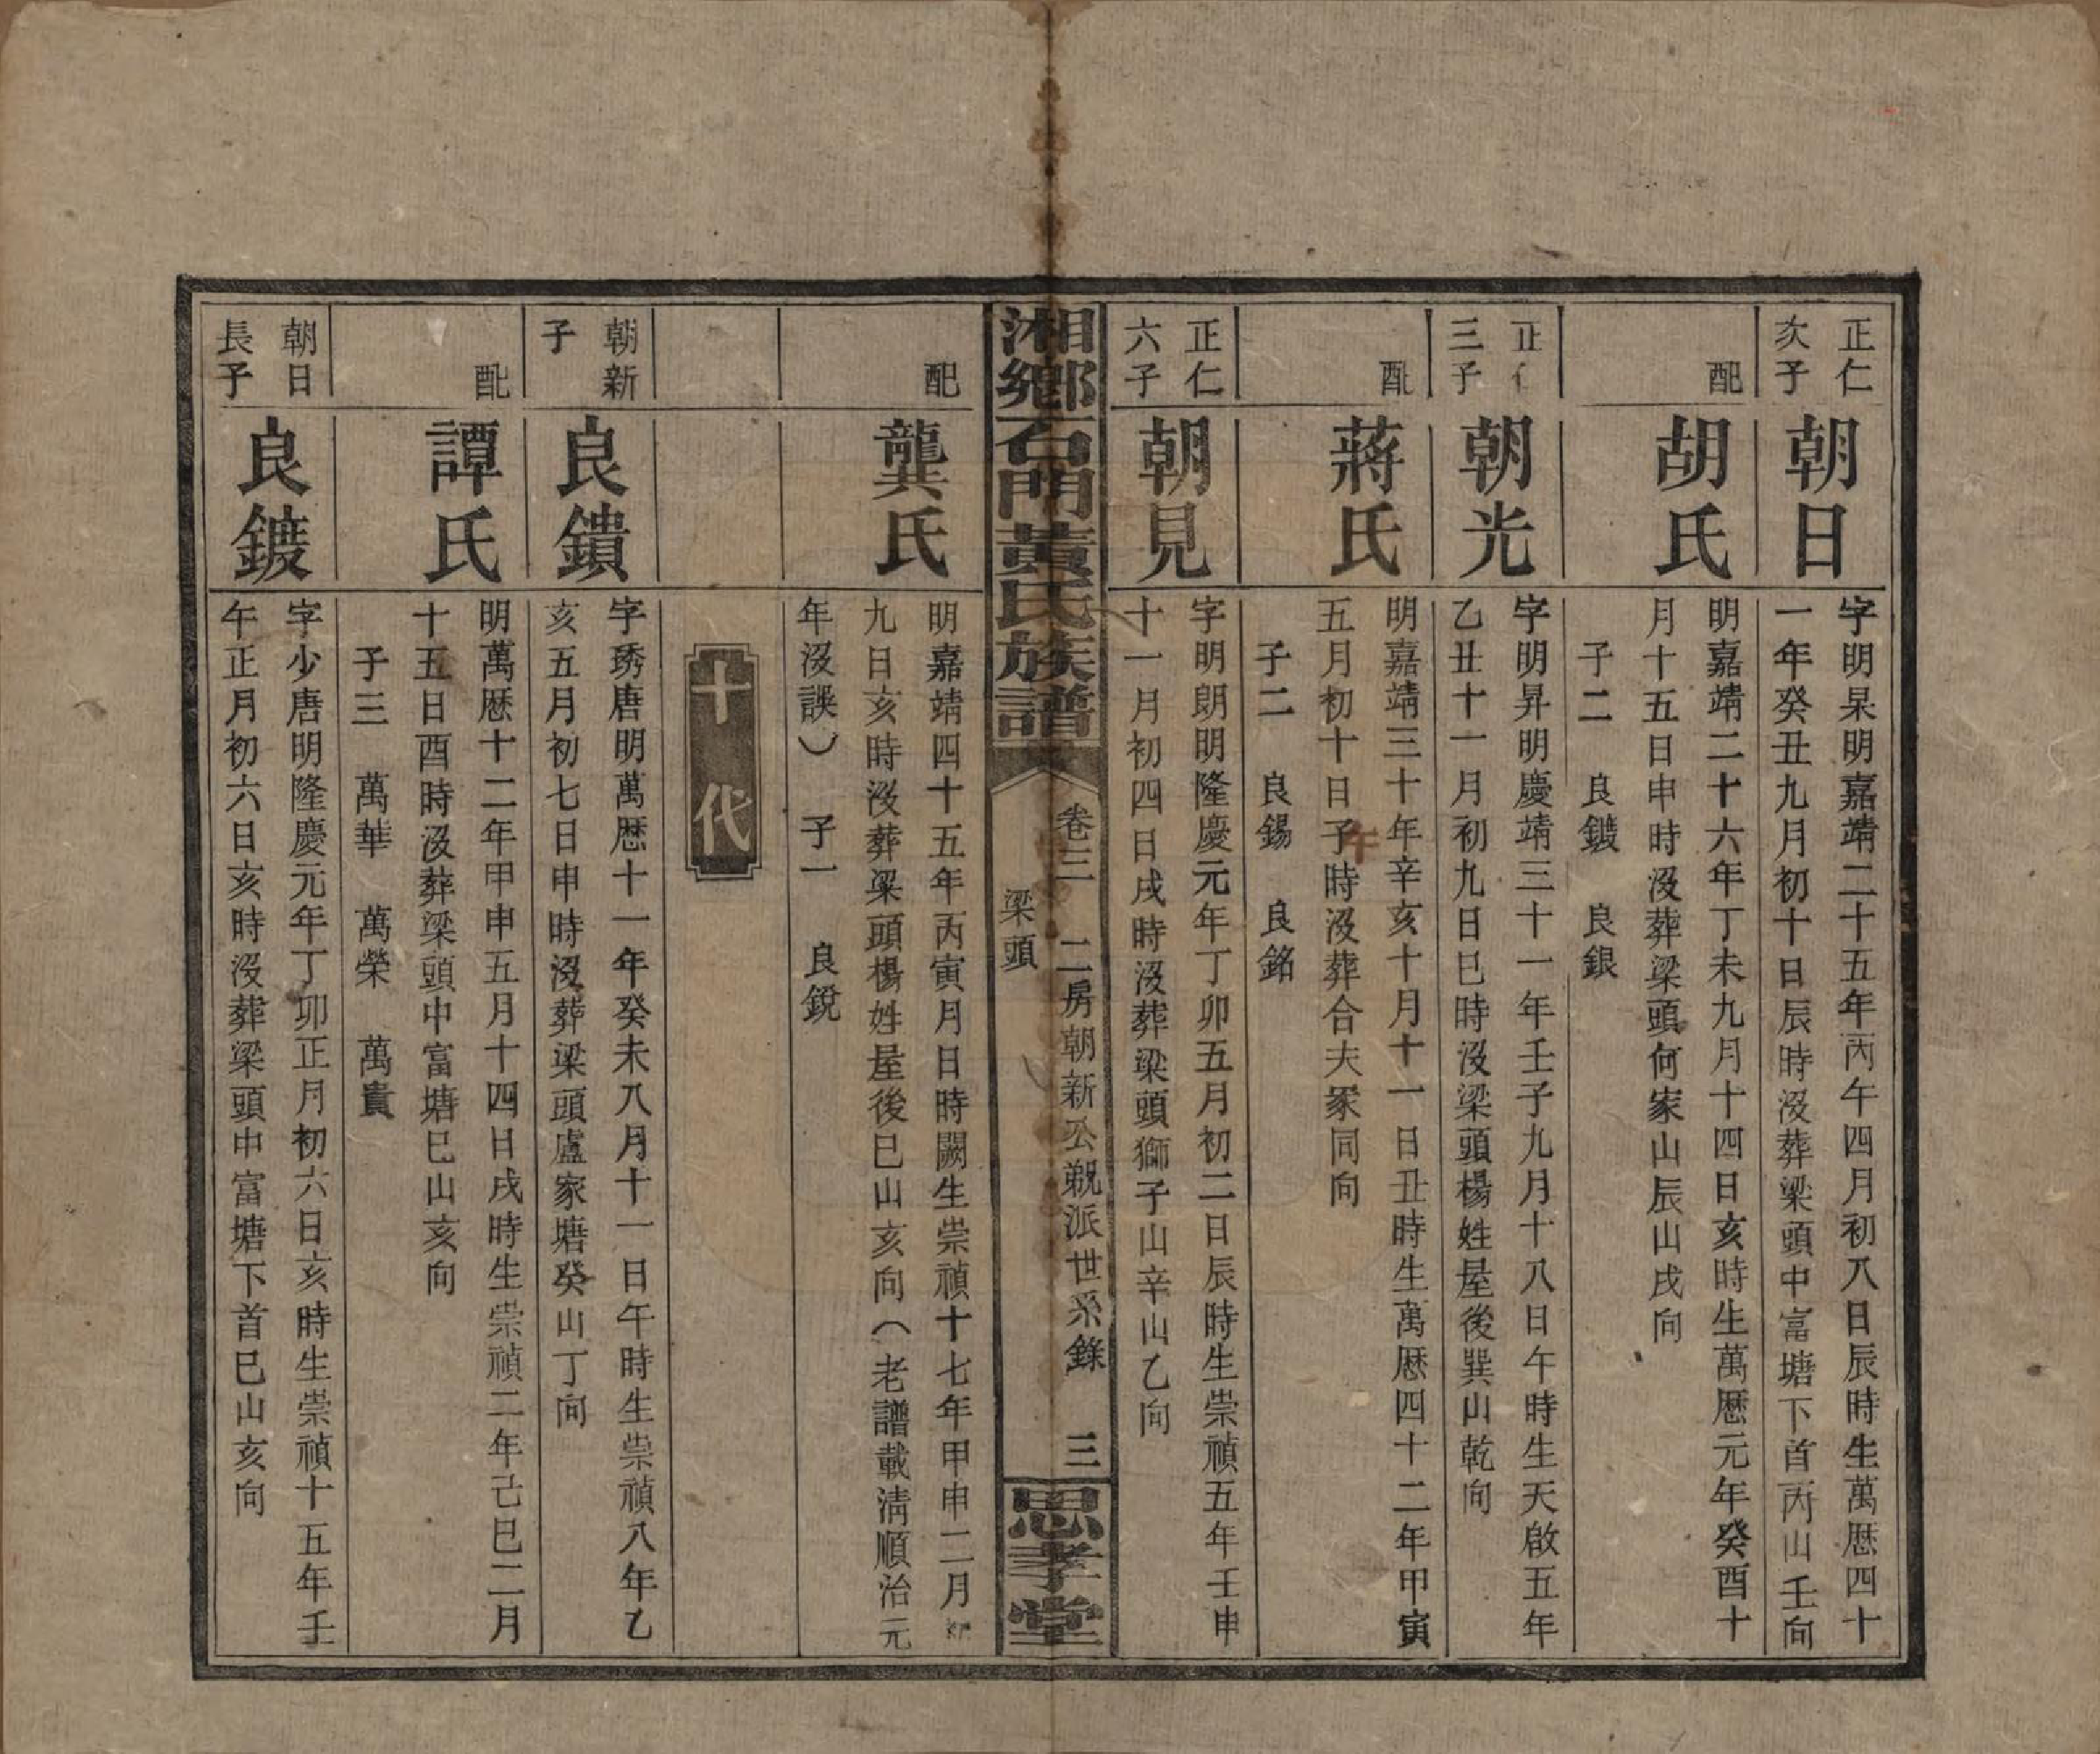 正仁
次子
朝日
字明杲明嘉靖二十五年丙午四月初八日辰時生萬厯四十
一年癸丑九月初十日辰時沒葬梁頭中富塘下首丙山壬向
配
胡氏
明嘉靖二十六年丁未九月十四日亥時生萬厯元年癸酉十
月十五日申時沒葬梁頭何家山辰山戌向
子二 良鍍 良銀
正仁
三子
朝光
字明昇明慶靖三十一年壬子九月十八日午時生天啟五年
乙丑十一月初九日巳時沒梁頭楊姓屋後巽山乾向
配
蔣氏
明嘉靖三十年辛亥十月十一日丑時生萬厯四十二年甲寅
五月初十日子時沒葬合夫冢同向
午
子二 良錫 良銘
正仁
六子
朝見
字明朗明隆慶元年丁卯五月初二日辰時生崇禎五年壬申
十一月初四日戌時沒葬梁頭獅子山辛山乙向
湘鄉石門黃氏族譜
卷三 二房朝新公覲派世系錄 三
梁頭
思孝堂
配
龔氏
明嘉靖四十五年丙寅月日時闕生崇禎十七年甲申二月初
九日亥時沒葬梁頭楊姓屋後巳山亥向(老譜載淸順治元
年沒誤) 子一 良銳
十代
朝新
子
良鐀
字琇唐明萬厯十一年癸未八月十一日午時生崇禎八年乙
亥五月初七日申時沒葬梁頭盧家塘癸山丁向
配
譚氏
明萬厯十二年甲申五月十四日戌時生崇禎二年己巳二月
十五日酉時沒葬梁頭中富塘巳山亥向
子三 萬華 萬榮 萬貴
朝日
長子
良鍍
字少唐明隆慶元年丁卯正月初六日亥時生崇禎十五年壬
午正月初六日亥時沒葬梁頭中富塘下首巳山亥向